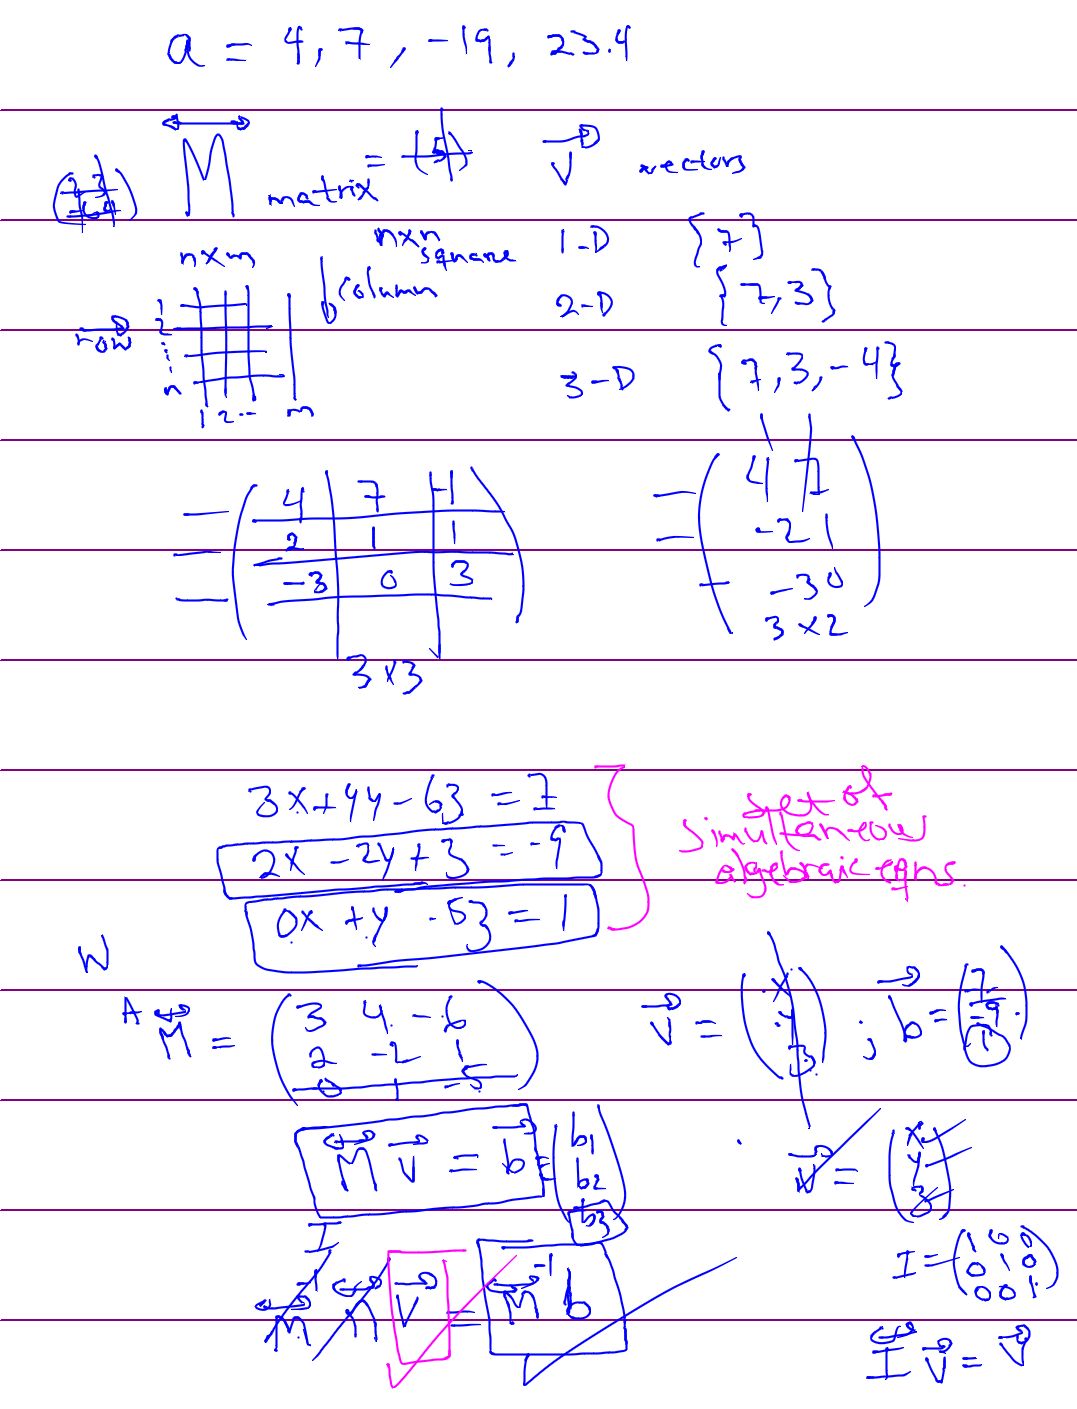 a = 4, 7, -19, 23.4
M matrix = (5) V vectors
n×m n×n square 1-D {7}
column 2-D {7,3}
row 1 2 n
1 2 .. m 3-D {7,3,-4}
4 7 -1
2 1 1
-3 0 3
3×3
4 7
-2 1
-3 0
3×2
3x+4y-6z = 7
2x-2y+z = -9
0x+y-5z = 1
set of
simultaneous
algebraic eqns.
W
A M = (3 4 -6
2 -2 1
0 1 -5)
V = (x
y
z) ; b = (7
-9
1)
M V = b = (b1
b2
b3)
V = (x
y
z)
I
M⁻¹ M V = M⁻¹ b
I = (1 0 0
0 1 0
0 0 1)
I V = V